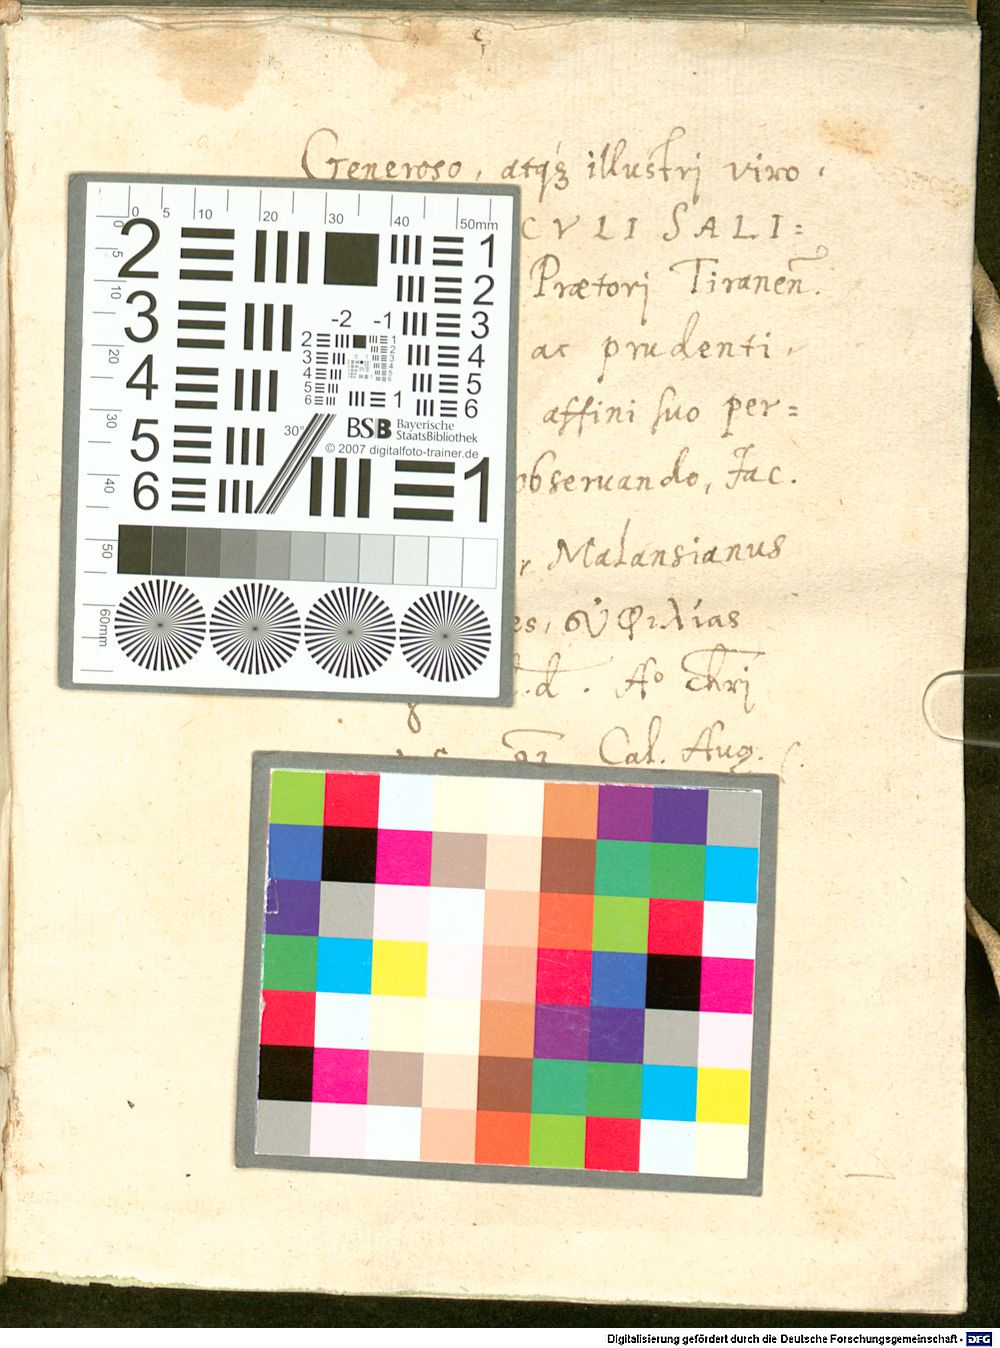 Generoso, atqꝫ illustri viro.
CVLI SALI=
Prætori Tiraneñ.
ac prudenti,
affini suo per=
obseruando, Jac.
r, Malansianus
es, σὺ φιλίας
.d. Aº Chri
Cal. Aug.
0 5 10 20 30 40 50mm
0 5 10 20 30 40 50 60mm
2 1
3 2
4 3
5 4
6 5
6
-2 -1
2 1
3 2
4 3
5 4
6 5
6
1
30°
BSB Bayerische
StaatsBibliothek
© 2007 digitalfoto-trainer.de
1
Digitalisierung gefördert durch die Deutsche Forschungsgemeinschaft - DFG